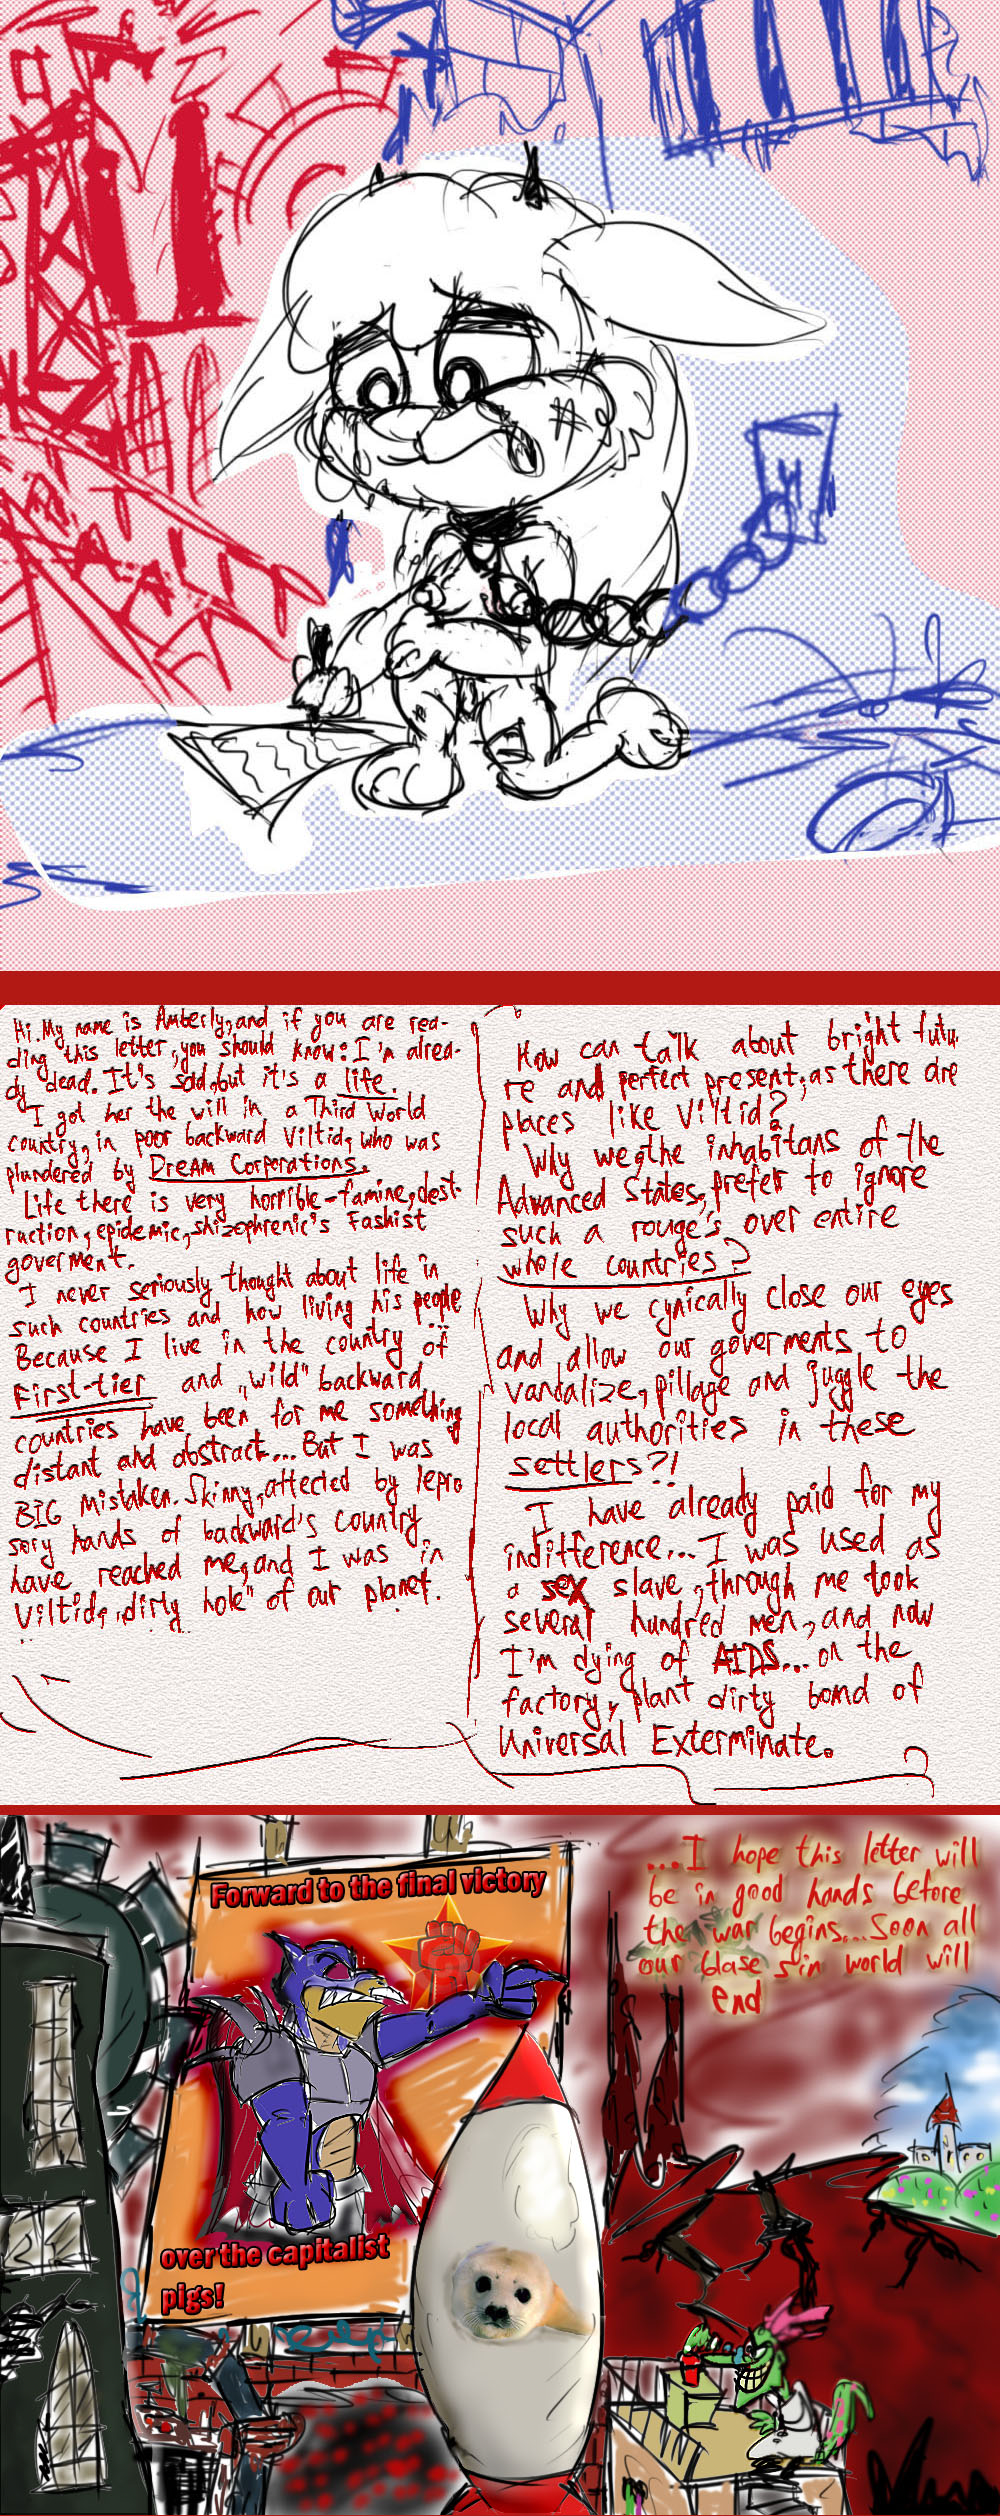 Hi. My name is Amberly, and if you are rea-
ding this letter, you should know: I'm alrea-
dy dead. It's sad, but it's a life.
I got her the will in a Third World
country, in poor backward Viltid, who was
plundered by Dream Corporations.
Life there is very horrible - famine, dest-
ruction, epidemic, shizophrenic's Fashist
goverment.
I never seriously thought about life in
such countries and how living his people
Because I live in the country of
First-tier and "wild" backward
countries have been for me something
distant and abstract... But I was
BIG mistaken. Skinny, affected by lepro
sory hands of backward's country
have reached me, and I was in
Viltid, "dirty hole" of our planet.
How can talk about bright futu
re and perfect present, as there are
places like Viltid?
Why we, the inhabitans of the
Advanced States, prefer to ignore
such a rouge's over entire
whole countries?
Why we cynically close our eyes
and allow our goverments to
vandalize, pillage and juggle the
local authorities in these
settlers?!
I have already paid for my
indifference... I was used as
a sex slave, through me took
several hundred men, and now
I'm dying of AIDS... on the
factory, plant dirty bomd of
Universal Exterminate.
Forward to the final victory
over the capitalist
pigs!
...I hope this letter will
be in good hands before
the war begins... Soon all
our blase sin world will
end